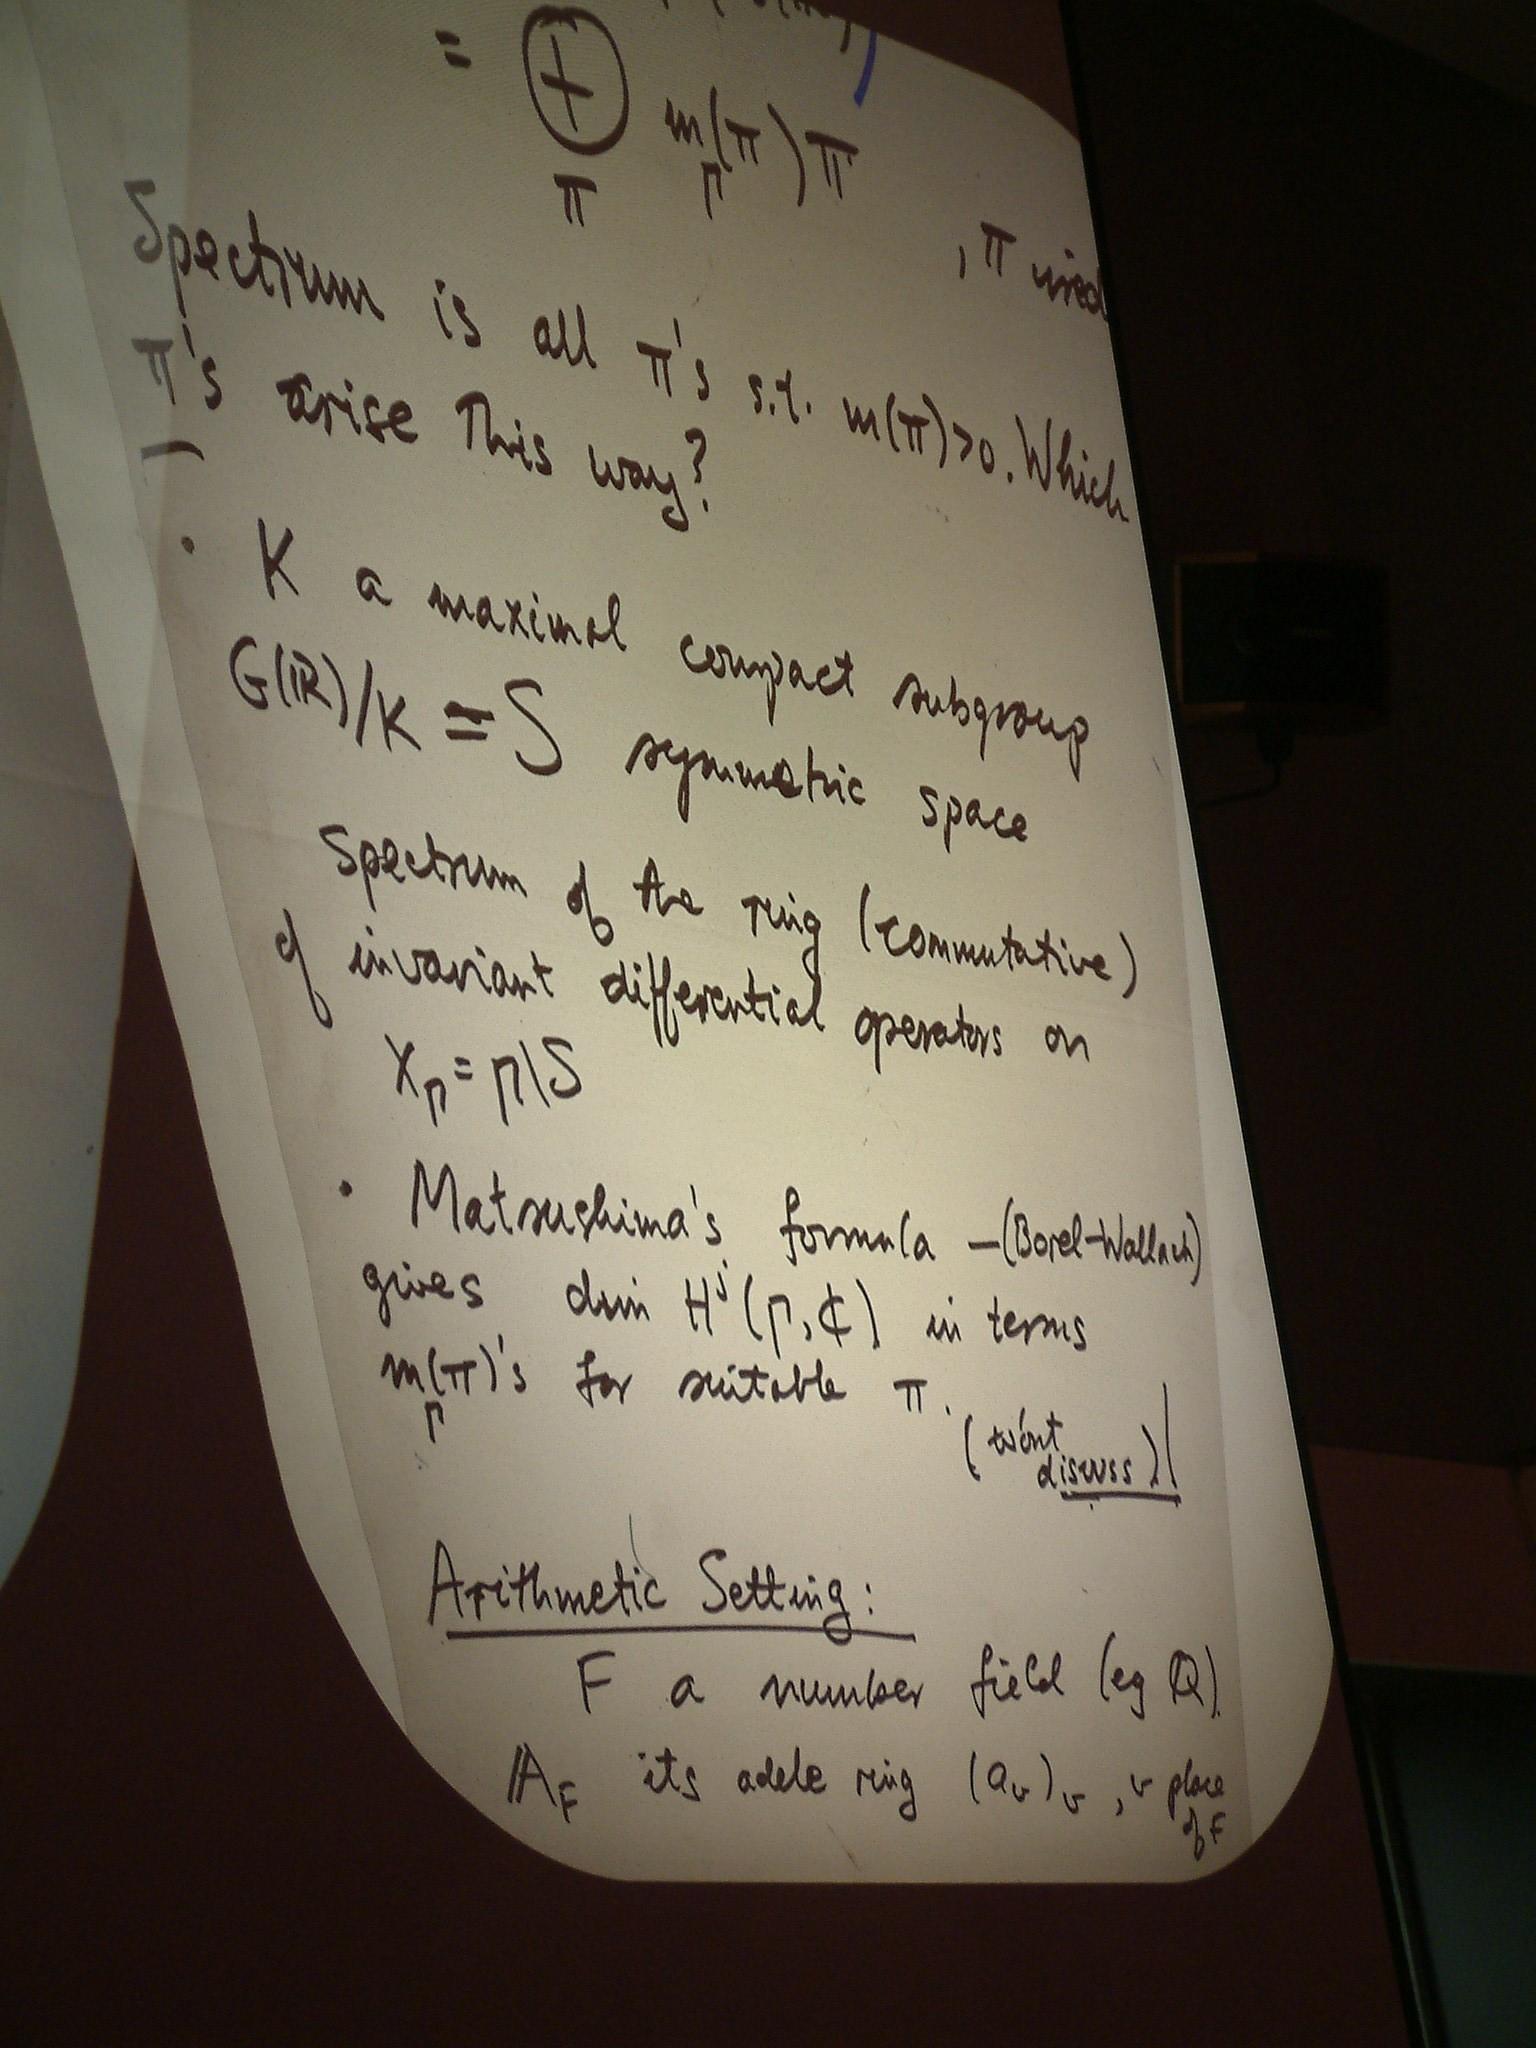 = ⊕ m(π) π
π Γ
, π irred
Spectrum is all π's s.t. m(π)>0. Which
π's arise this way?
· K a maximal compact subgroup
G(ℝ)/K = S symmetric space
Spectrum of the ring (commutative)
of invariant differential operators on
X_Γ = Γ\S
· Matsushima's formula – (Borel-Wallach)
gives dim H^j(Γ, ℂ) in terms
m_Γ(π)'s for suitable π.
(won't
discuss)
Arithmetic Setting:
F a number field (eg ℚ).
𝔸_F its adele ring (a_v)_v , v place
of F